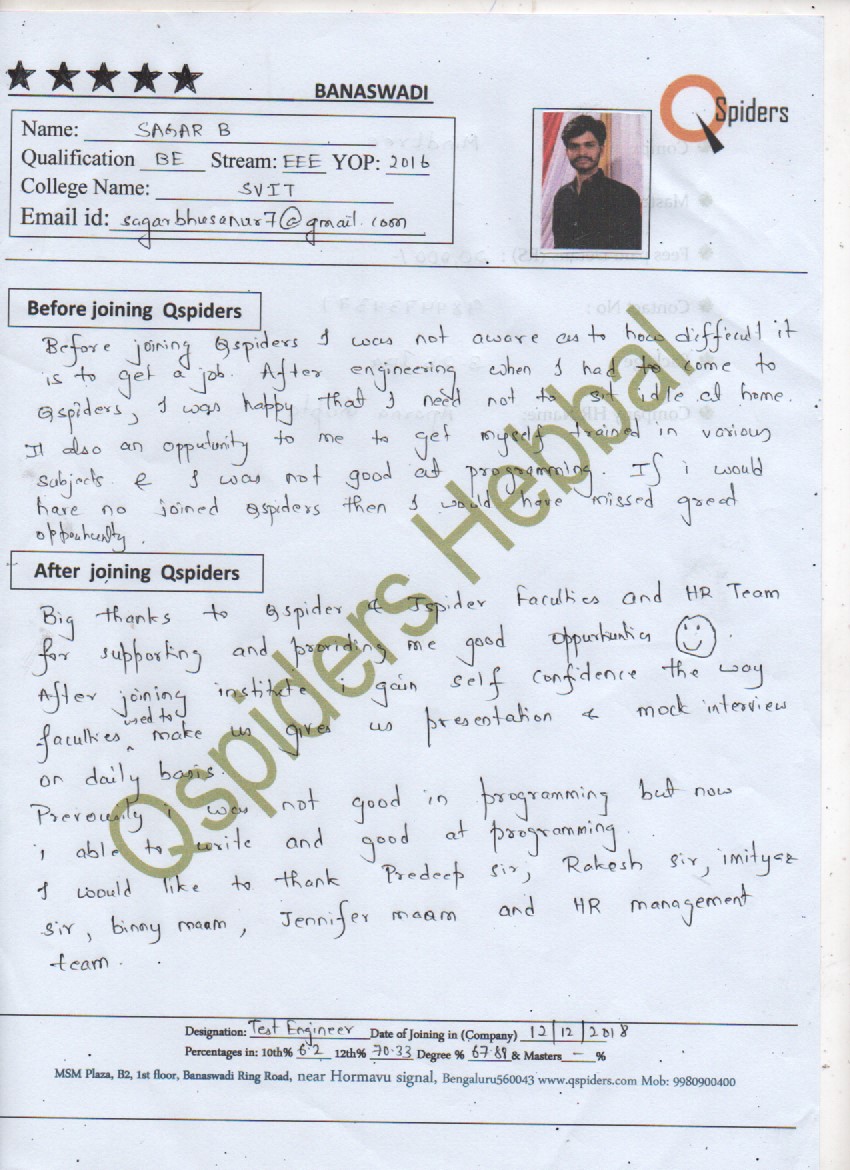 BANASWADI
Qspiders
Name: SAGAR B
Qualification BE Stream: EEE YOP: 2016
College Name: SVIT
Email id: sagarbhusanur7@gmail.com
Before joining Qspiders
Before joining Qspiders I was not aware as to how difficult it
is to get a job. After engineering when I had to come to
Qspiders, I was happy that I need not to sit idle at home.
It also an opputunity to me to get myself trained in various
subjects & I was not good at programming. If i would
have no joined Qspiders then I would have missed great
opportunity.
After joining Qspiders
Big thanks to Qspider & Jspider Faculties and HR Team
for supporting and providing me good oppurtunities
After joining institute i gain self confidence the way
faculties used to make us gives us presentation & mock interview
on daily basis.
Previously i was not good in programming but now
i able to write and good at programming.
I would like to thank Pradeep sir, Rakesh sir, imityaz
sir, binny maam, Jennifer maam and HR management
team.
Qspiders Hebbal
Designation: Test Engineer Date of Joining in (Company) 12|12|2018
Percentages in: 10th% 62 12th% 70.33 Degree % 67.89 & Masters - %
MSM Plaza, B2, 1st floor, Banaswadi Ring Road, near Hormavu signal, Bengaluru560043 www.qspiders.com Mob: 9980900400